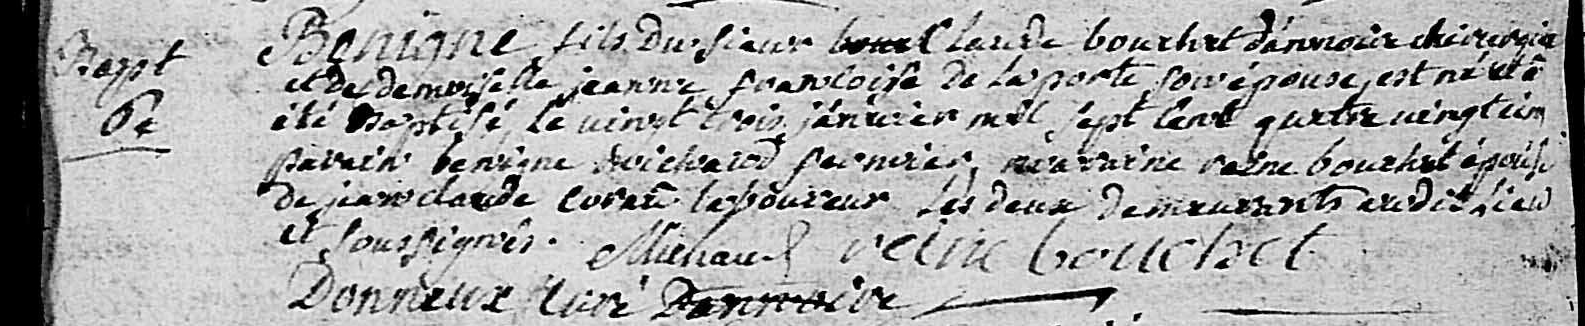 Bapt
6e
Benigne fils du sieur Claude bouchet d'annoire chirurgien
et de demoiselle jeanne francoise de laporte son épouse, est né et a
été Baptisé, le vingt trois janvier mil sept cent quatre vingt cinq
parain benigne Michaud fermier, maraine reine bouchet épouse
de jean claude laboureur les deux demeurants audit Lieu
et soussignés. Michaud reine bouchet
Donneux Curé Dannoire